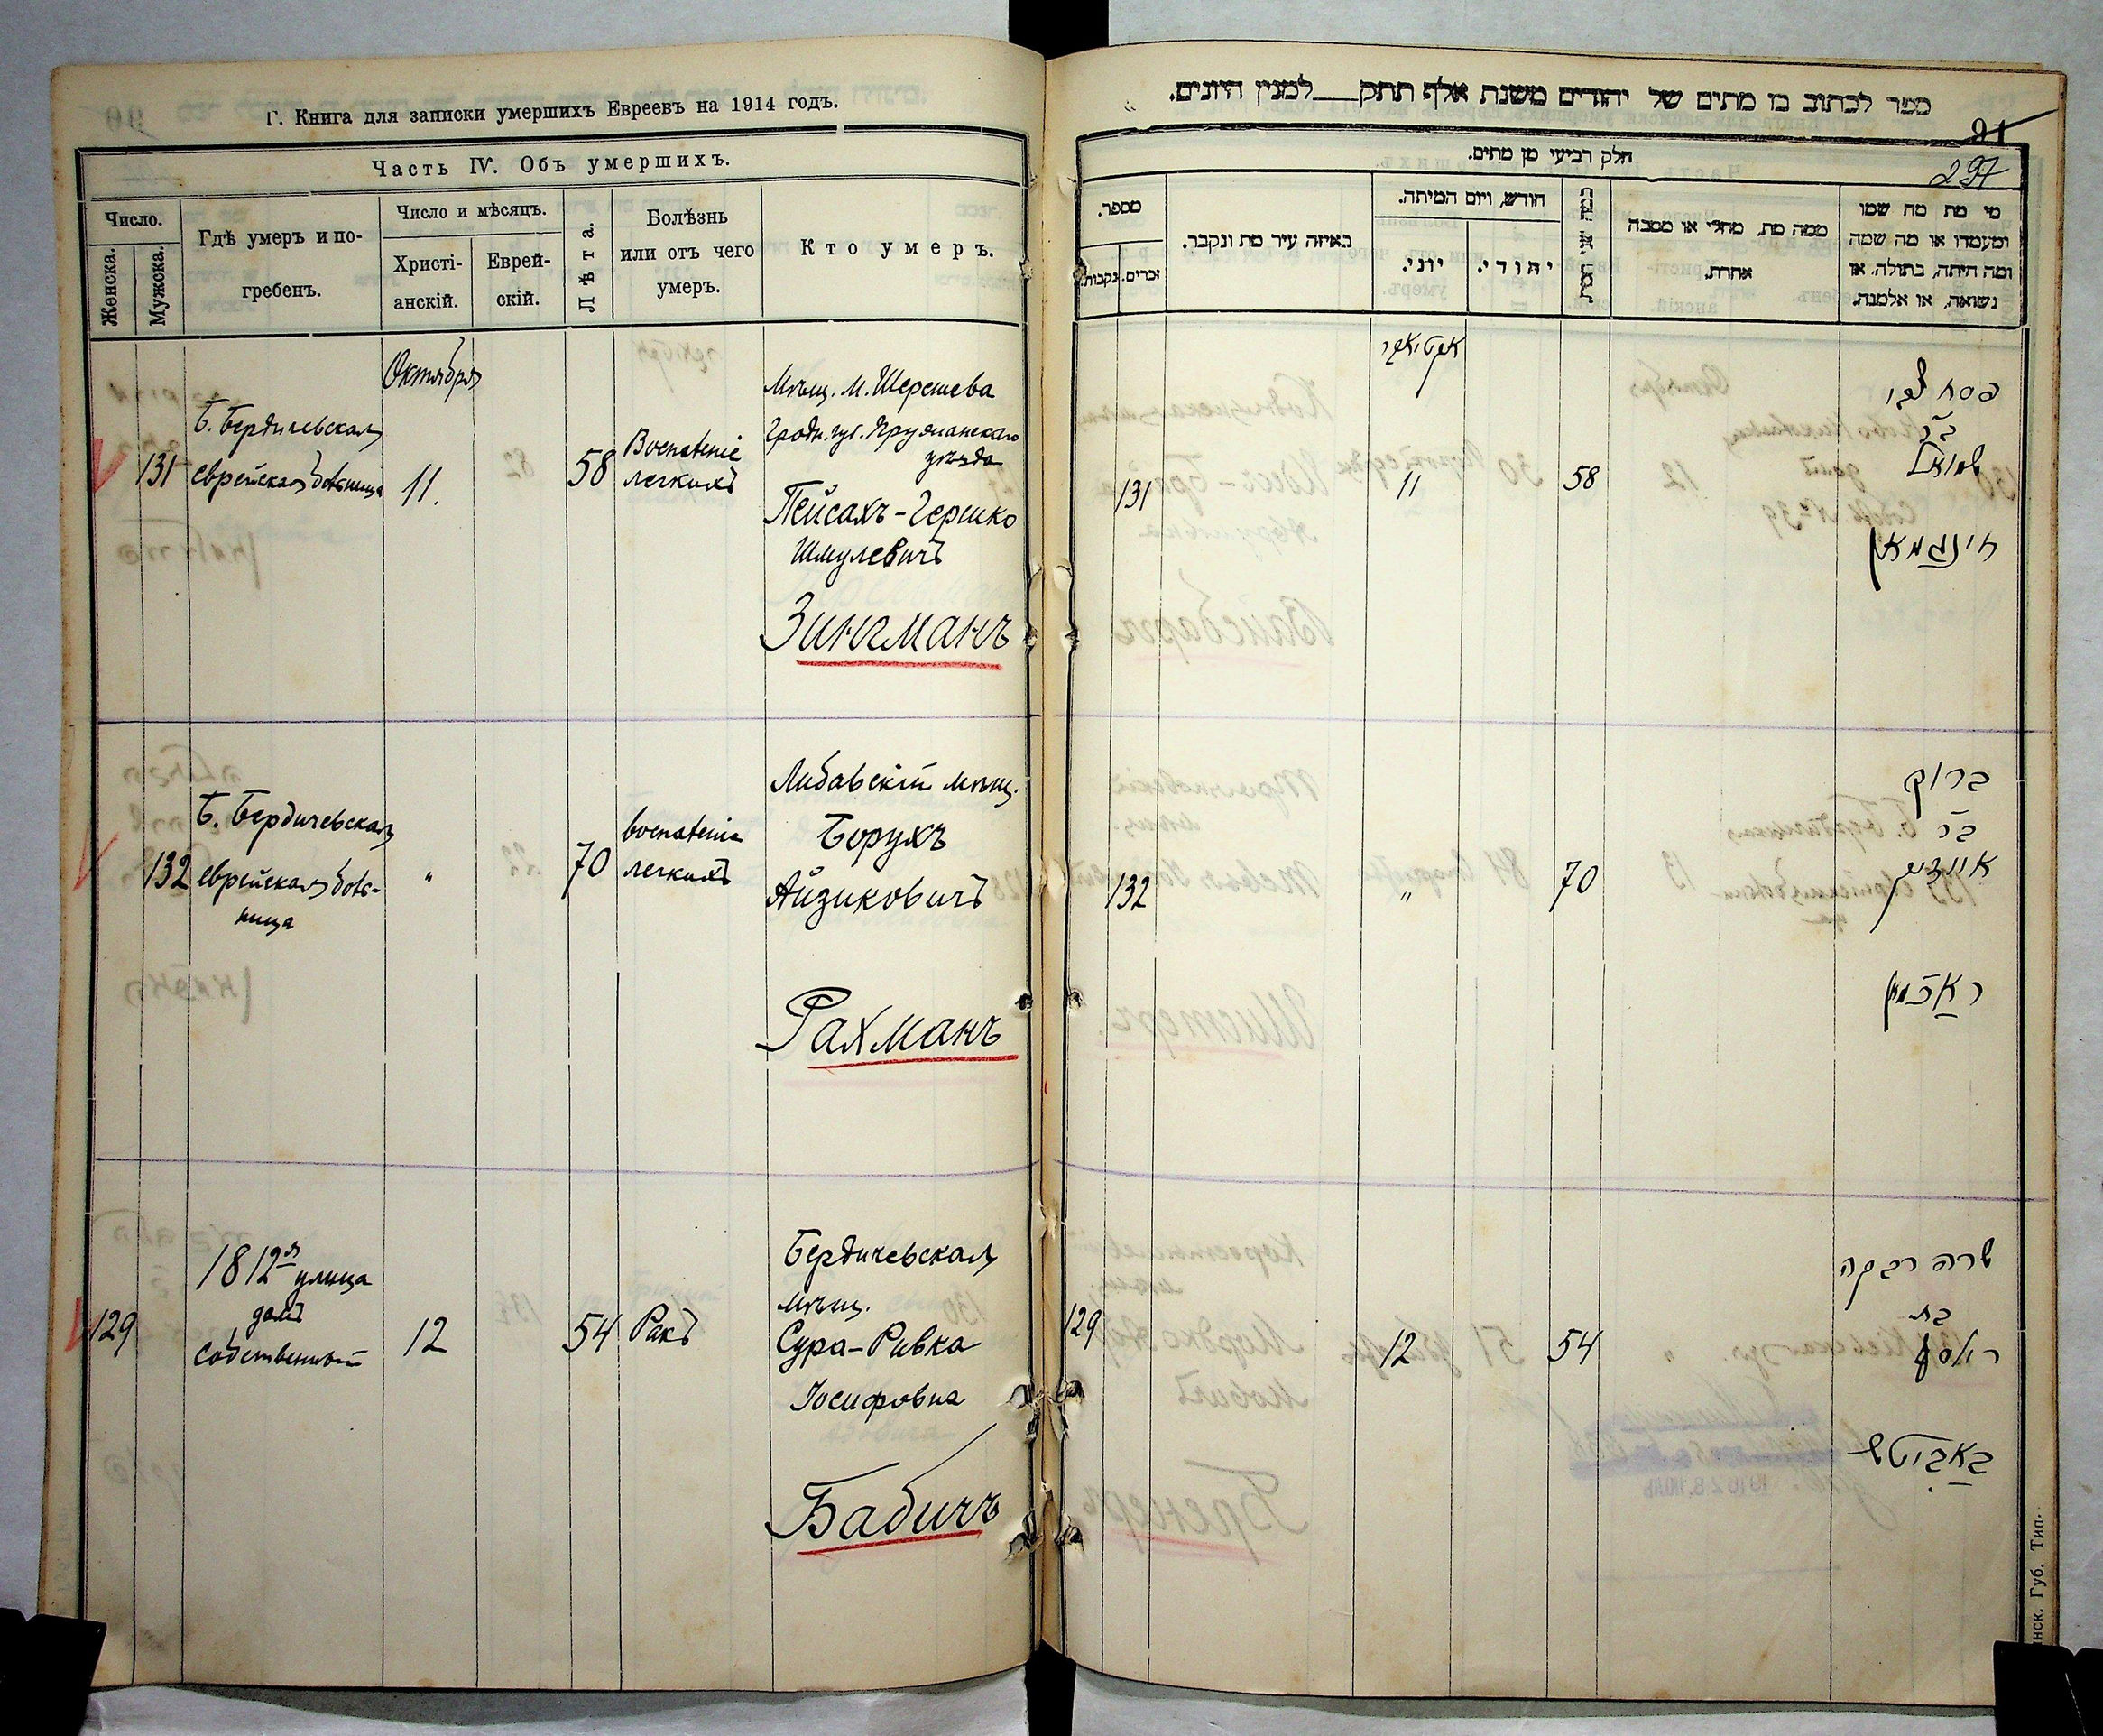 Г. Книга для записки умершихъ Евреевъ на 1914 годъ.
Часть IV. Объ умершихъ.
Число.
Женска.
Мужска.
Гдѣ умеръ и по-
гребенъ.
Число и мѣсяцъ.
Христі-
анскій.
Еврей-
скій.
Лѣта.
Болѣзнь
или отъ чего
умеръ.
Кто умеръ.
Октября
131
Б. Бердичевская
еврейская больница
11.
58
Воспаленіе
легкихъ
Мѣщ. м. Шерешева
Гродн. губ. Пружанскаго
уѣзда
Пейсахъ-Гершко
Шмулевичъ
Зингманъ
132
Б. Бердичевская
еврейская боль-
ница
"
70
воспаленіе
легкихъ
Либавскій мѣщ.
Борухъ
Айзиковичъ
Рахманъ
129
1812й улица
домъ
собственный
12
54
Ракъ
Бердичевская
мѣщ.
Сура-Ривка
Іосифовна
Бабичъ
ספר לכתוב בו מתים של יהודים משנת אלף תתק למנין היונים.
91
297
חלק רביעי מן מתים.
מספר.
נקבות.
זכרים.
באיזה עיר מת ונקבר.
חודש, ויום המיתה.
יוני.
יהודי.
ממה מת, מחלי או מסבה
אחרת.
מי מת מה שמו
ומעמדו או מה שמה
ומה היתה, בתולה, או
נשואה, או אלמנה.
אקטיאבר
131
11
58
פסח הערש
בר
שמואל
זינגמאן
132
"
70
ברוך
בר
אייזיק
ראכמאן
129
12
54
שרה רבקה
בת
יוסף
באביטש
нск. Губ. Тип.